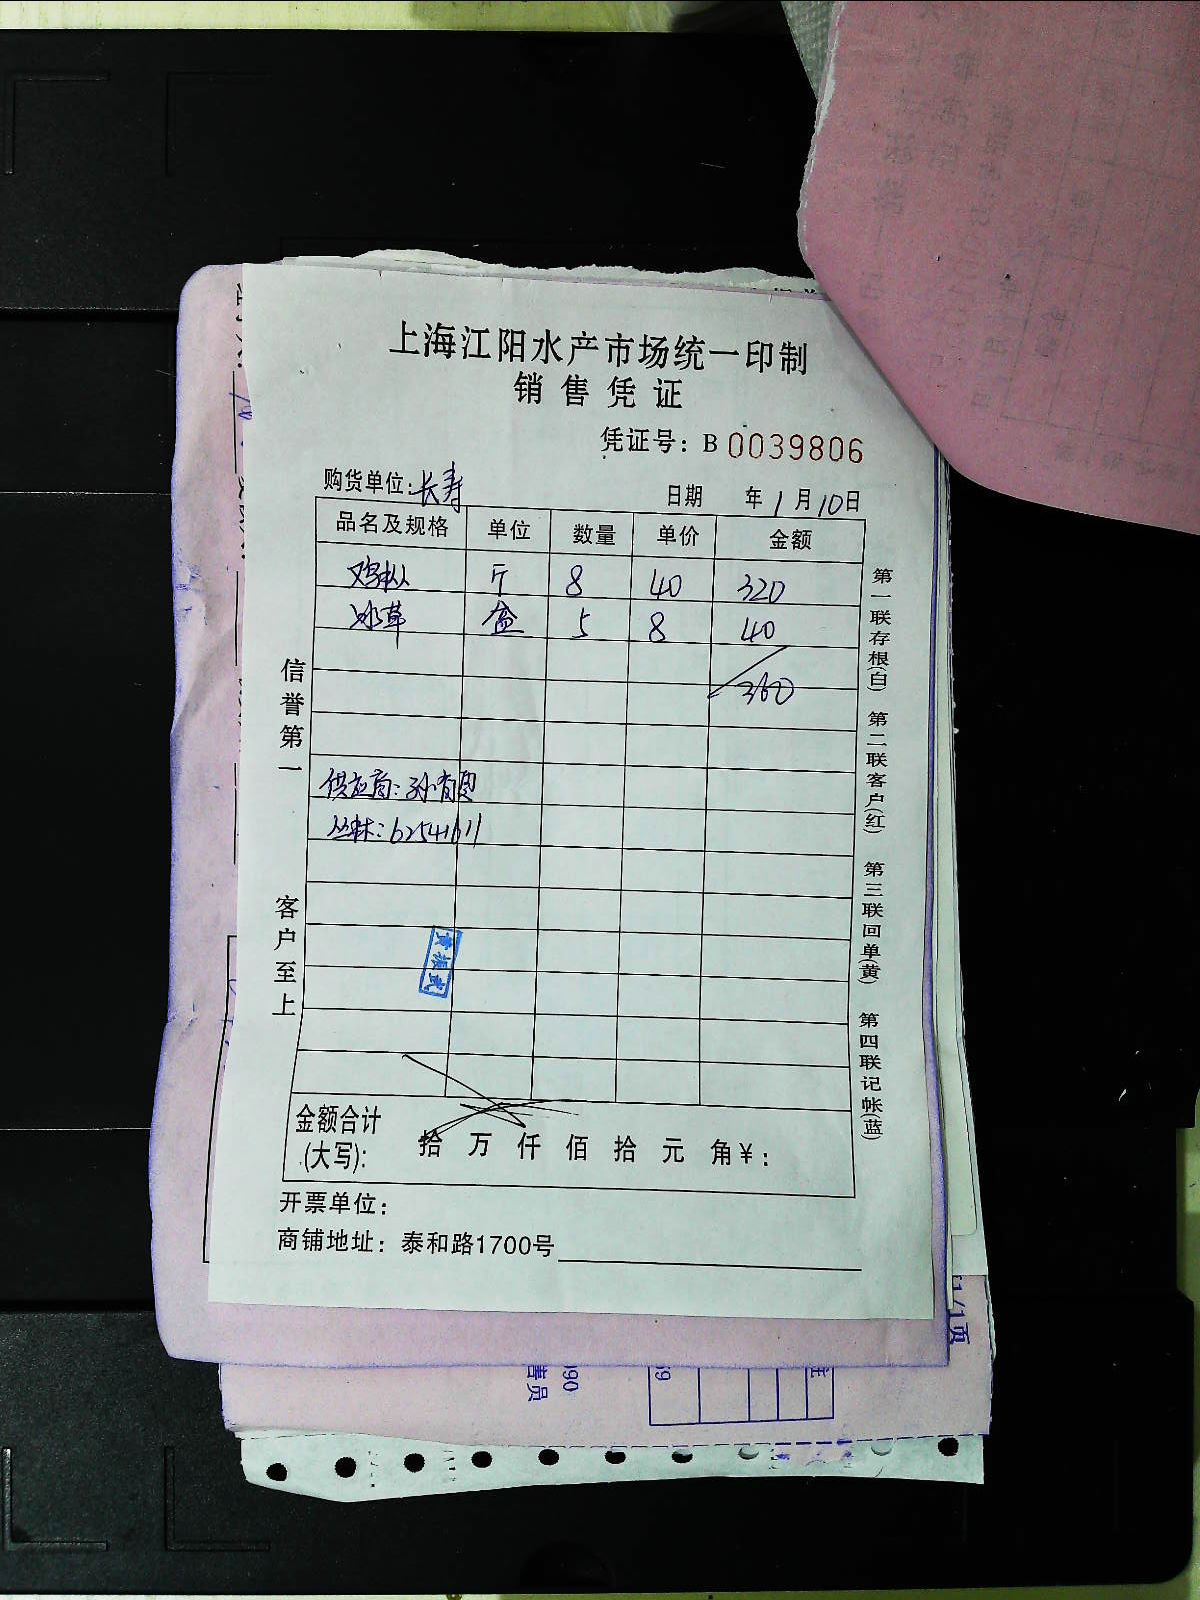 上海江阳水产市场统一印制
销售凭证
凭证号：B 0039806
购货单位：长寿 日期 年1月10日
品名及规格 单位 数量 单价 金额
鸡枞 斤 8 40 320
冰草 盒 5 8 40
360
供应商：孙有
丛林：62541611
信誉第一
客户至上
第一联存根(白) 第二联客户(红) 第三联回单(黄) 第四联记帐(蓝)
金额合计
(大写)： 拾 万 仟 佰 拾 元 角 ¥：
开票单位：
商铺地址：泰和路1700号
1/1页
售员
090
69